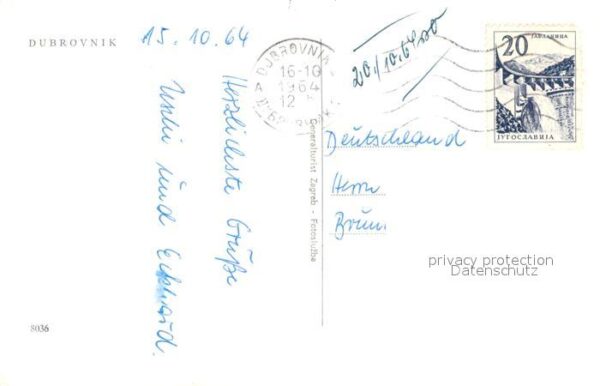 DUBROVNIK
15.10.64
Herzlichste Grüße
Uschi und Eckhard.
8036
Generalturist Zagreb - Fotoslužba
DUBROVNIK
16-10
1964
12
A
20./10.64
20
ЈАБЛАНИЦА
ЈУГОСЛАВИЈА
Deutschland
Herrn
Brun
privacy protection
Datenschutz